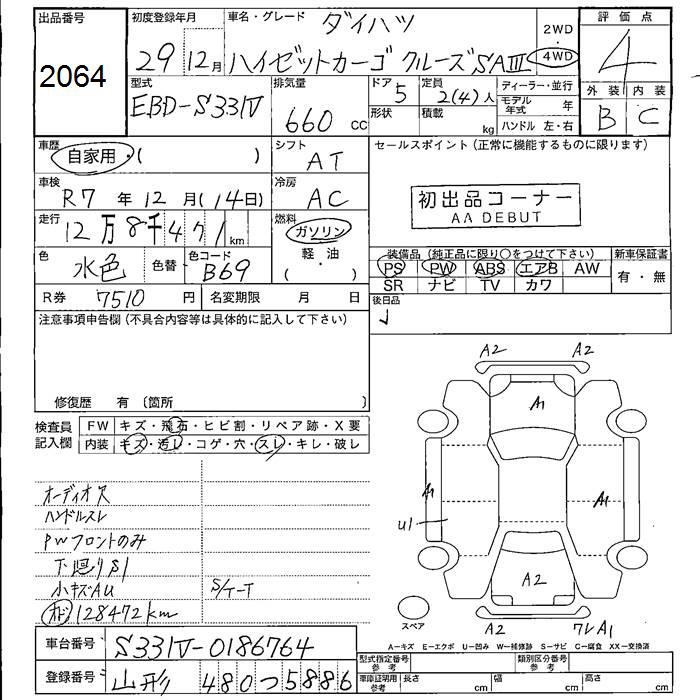 出品番号
2064
初度登録年月
29年12月
車名・グレード
ダイハツ
ハイゼットカーゴ クルーズSAIII
2WD
4WD
評価点
4
外装 内装
B C
型式
EBD-S331V
排気量
660 CC
ドア
5
形状
定員
2(4)人
積載
kg
ディーラー・並行
モデル年式 年
ハンドル 左・右
車歴
自家用・( )
シフト
AT
セールスポイント(正常に機能するものに限ります)
初出品コーナー
AA DEBUT
車検
R7年12月(14日)
冷房
AC
走行
12万8千471km
燃料
ガソリン
軽・油
( )
色
水色
色替
色コード
B69
装備品(純正品に限り○をつけて下さい)
PS PW ABS エアB AW
SR ナビ TV カワ
新車保証書
有・無
R券 7510 円
名変期限 月 日
後日品
注意事項申告欄(不具合内容等は具体的に記入して下さい)
修復歴 有 〔箇所 〕
検査員記入欄
FW キズ・飛石・ヒビ割・リペア跡・X要
内装 キズ・汚レ・コゲ・穴・スレ・キレ・破レ
オーディオ欠
ハンドルスレ
PWフロントのみ
下廻りS1
小キズAU
S/ケード
128472km
A2 A2
A1
A1 A1
U1
A2
スペア
A2 ワレA1
A-キズ E-エクボ U-凹み W-補修跡 S-サビ C-腐食 XX-交換済
車台番号 S331V-0186764
登録番号 山形 480 つ 5886
型式指定番号 参考
類別区分番号 参考
車庫証明用 参考 長さ cm 幅 cm 高さ cm